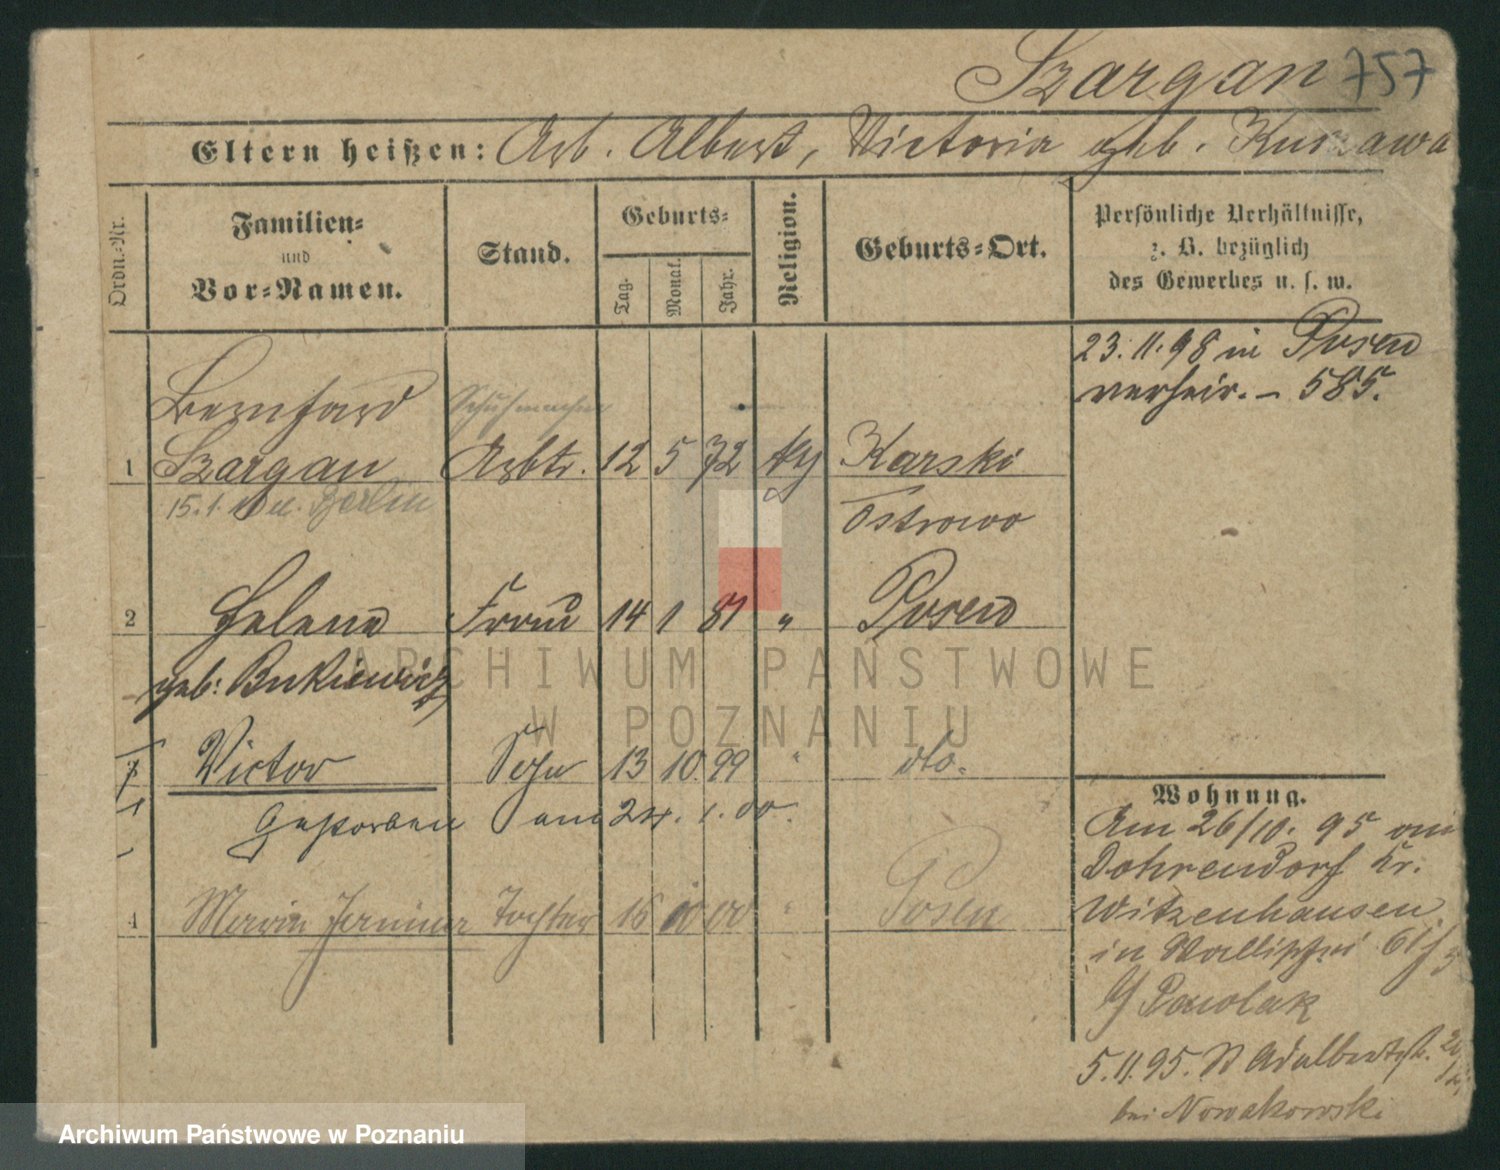 Szargan 757
Eltern heißen: Arb. Albert, Victoria geb. Kurzawa
Ordn.-Nr.
Familien-
und
Vor-Namen.
Stand.
Geburts-
Tag.
Monat.
Jahr.
Religion.
Geburts-Ort.
Persönliche Verhältnisse,
z. B. bezüglich
des Gewerbes u. s. w.
23.11.98 in Posen
verheir. – 585.
Bernhard Schuhmacher
1 Szargan Arbtr. 12 5 72 Karski
15.1. Berlin
Ostrowo
2 Helene Frau 14 1 81 " Posen
geb: Bukiewicz
Victor Sohn 13 10 99 " dto.
Gestorben am 24. 1. 00.
4 Tochter 16 00 " Posen
Wohnung.
Am 26/10. 95 aus
Dohrendorf Kr.
Witzenhausen
in Wallischei
Pawolak
5.11.95. St Adalbertstr.
bei Nowakowski
ARCHIWUM PAŃSTWOWE
W POZNANIU
Archiwum Państwowe w Poznaniu